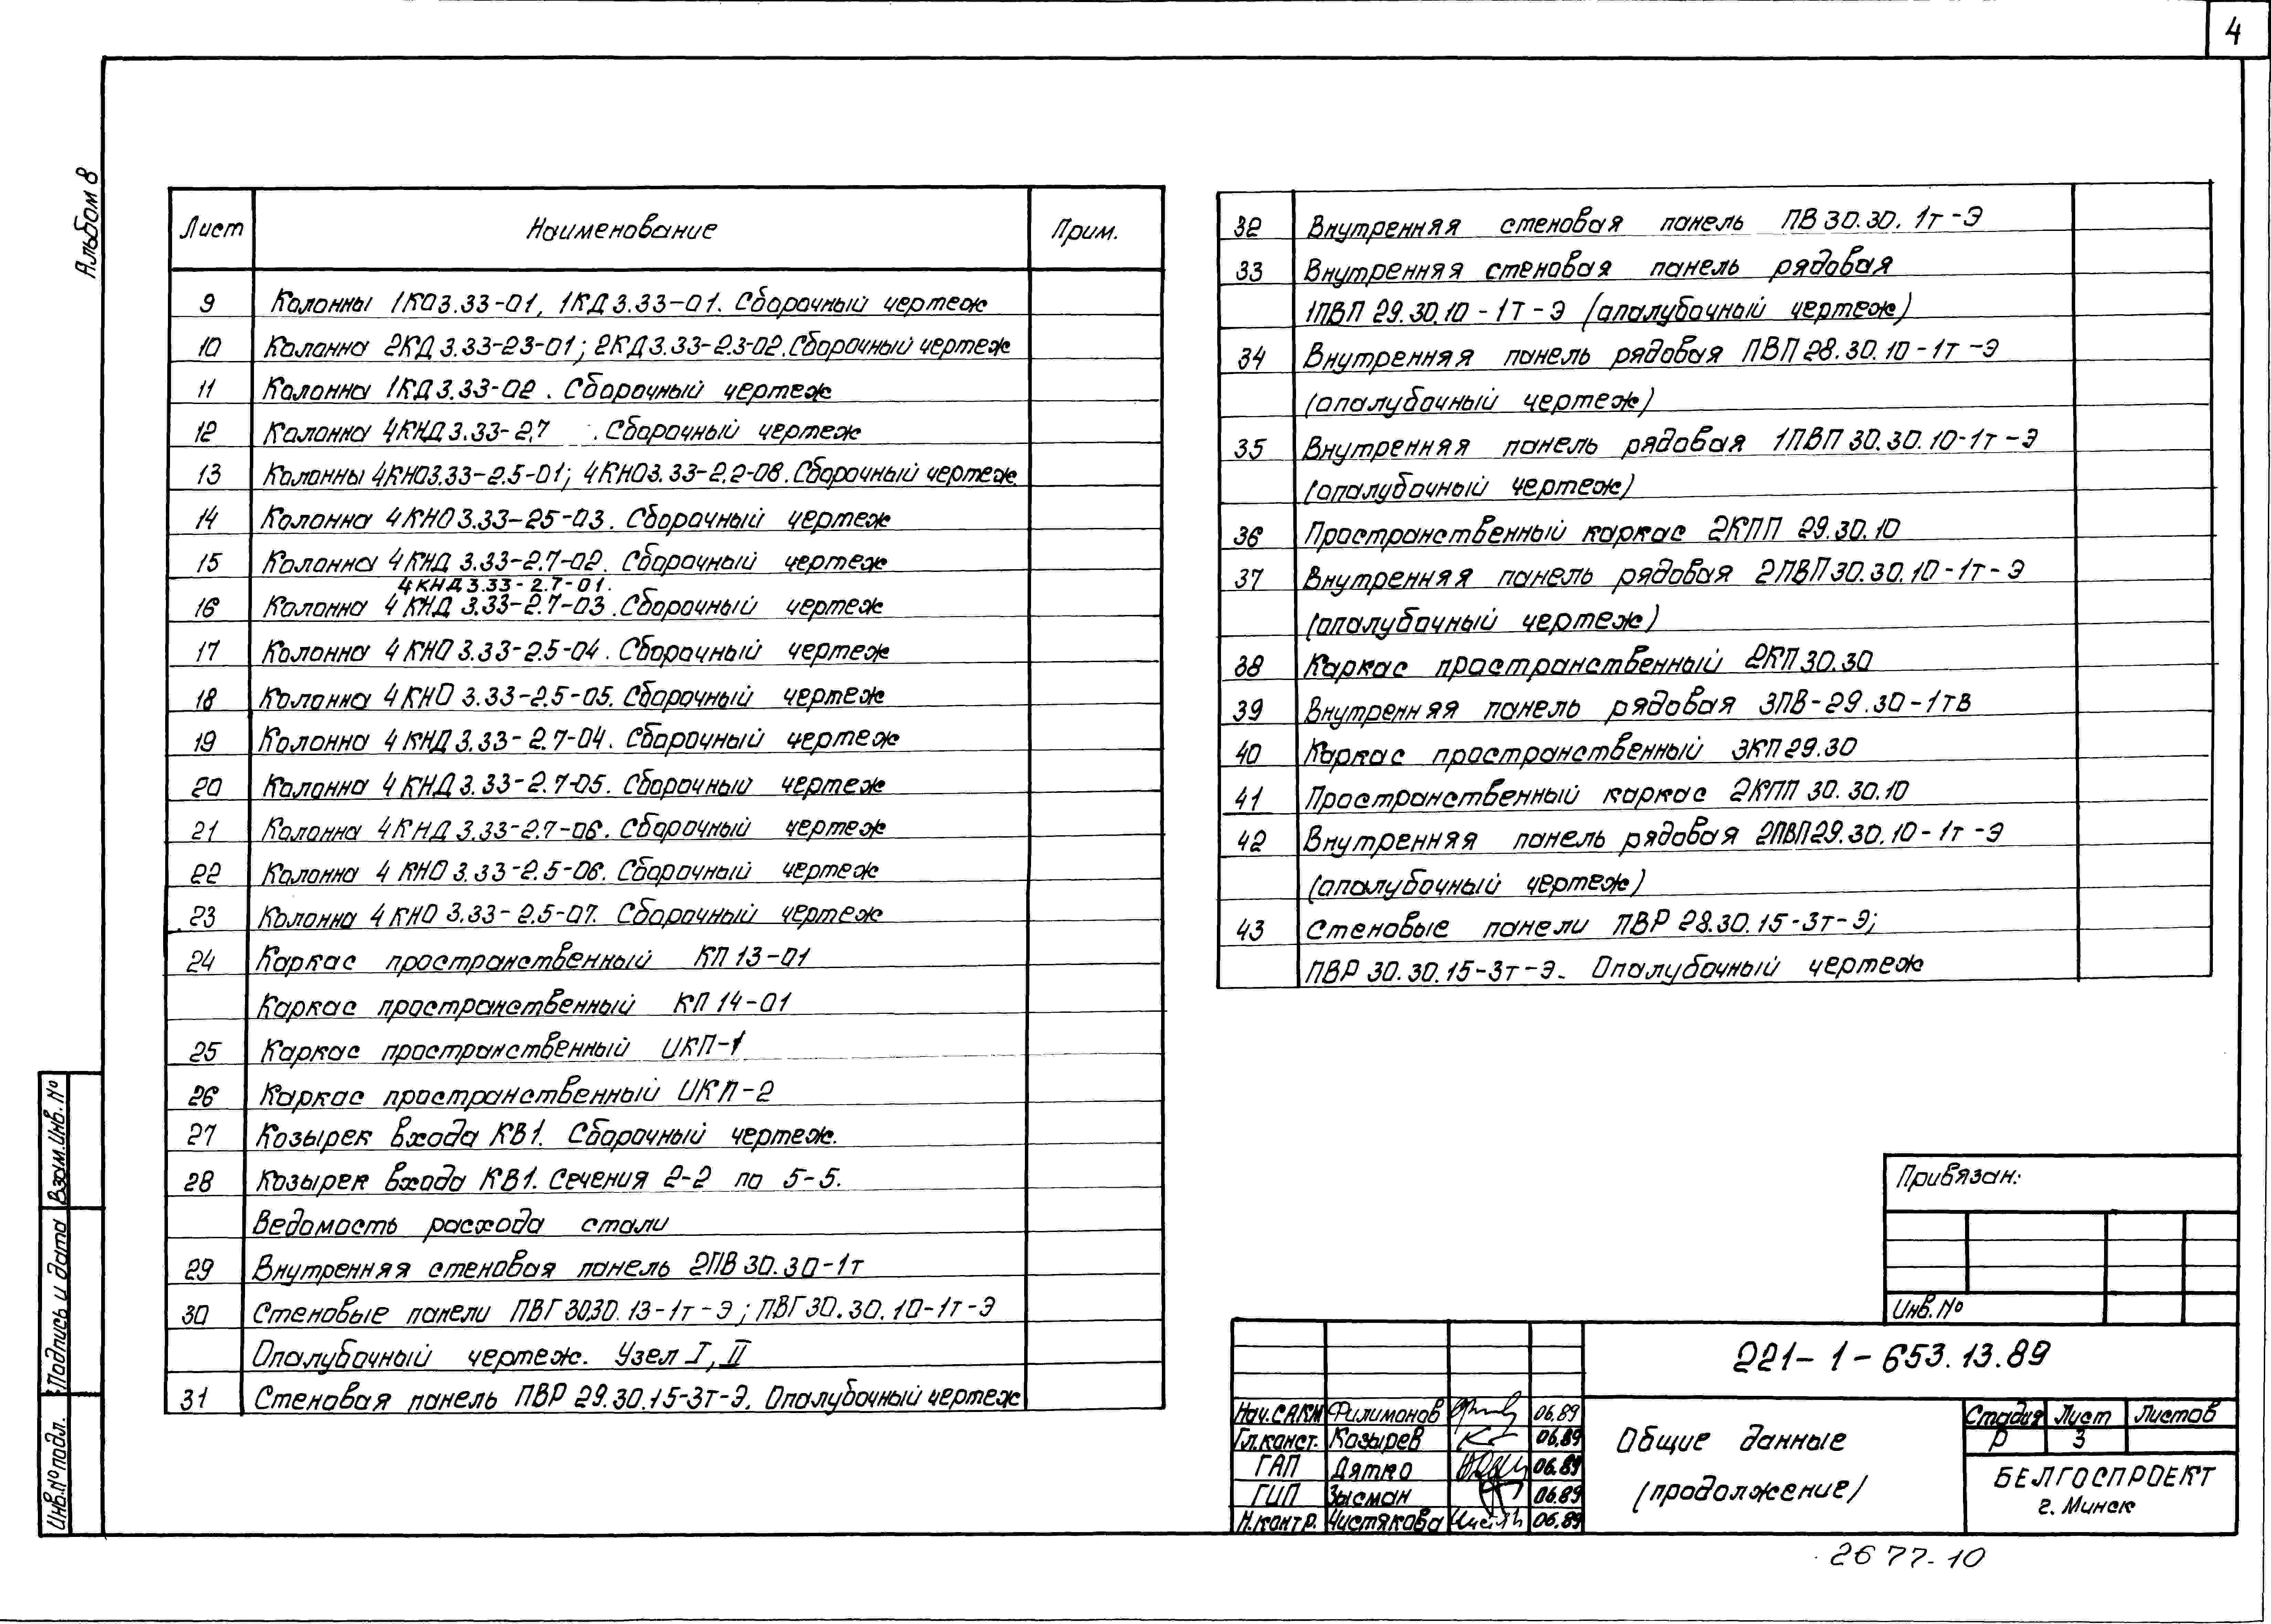 4
Альбом 8
Лист Наименование Прим.
9 Колонны 1КО3.33-01, 1КД3.33-01. Сборочный чертеж
10 Колонна 2КД3.33-23-01; 2КД3.33-2.3-02. Сборочный чертеж
11 Колонна 1КД3.33-02. Сборочный чертеж
12 Колонна 4КНД3.33-2.7 . Сборочный чертеж
13 Колонны 4КНО3.33-2.5-01; 4КНО3.33-2.2-08. Сборочный чертеж
14 Колонна 4КНО3.33-25-03. Сборочный чертеж
15 Колонна 4КНД 3.33-2.7-02. Сборочный чертеж
4КНД3.33-2.7-01.
16 Колонна 4КНД 3.33-2.7-03. Сборочный чертеж
17 Колонна 4КНО 3.33-2.5-04. Сборочный чертеж
18 Колонна 4КНО 3.33-2.5-05. Сборочный чертеж
19 Колонна 4КНД3.33-2.7-04. Сборочный чертеж
20 Колонна 4КНД3.33-2.7-05. Сборочный чертеж
21 Колонна 4КНД3.33-2.7-06. Сборочный чертеж
22 Колонна 4КНО3.33-2.5-06. Сборочный чертеж
23 Колонна 4КНО 3.33-2.5-07. Сборочный чертеж
24 Каркас пространственный КП 13-01
Каркас пространственный КП 14-01
25 Каркас пространственный ИКП-1
26 Каркас пространственный ИКП-2
27 Козырек входа КВ1. Сборочный чертеж.
28 Козырек входа КВ1. Сечения 2-2 по 5-5.
Ведомость расхода стали
29 Внутренняя стеновая панель 2ПВ 30.30-1т
30 Стеновые панели ПВГ 3030.13-1т-Э; ПВГ30.30.10-1т-Э
Опалубочный чертеж. Узел I, II
31 Стеновая панель ПВР 29.30.15-3т-Э. Опалубочный чертеж
32 Внутренняя стеновая панель ПВ 30.30.1т-Э
33 Внутренняя стеновая панель рядовая
1ПВП 29.30.10-1т-Э (опалубочный чертеж)
34 Внутренняя панель рядовая ПВП28.30.10-1т-Э
(опалубочный чертеж)
35 Внутренняя панель рядовая 1ПВП 30.30.10-1т-Э
(опалубочный чертеж)
36 Пространственный каркас 2КПП 29.30.10
37 Внутренняя панель рядовая 2ПВП30.30.10-1т-Э
(опалубочный чертеж)
38 Каркас пространственный 2КП30.30
39 Внутренняя панель рядовая 3ПВ-29.30-1тв
40 Каркас пространственный 3КП29.30
41 Пространственный каркас 2КПП 30.30.10
42 Внутренняя панель рядовая 2ПВП29.30.10-1т-Э
(опалубочный чертеж)
43 Стеновые панели ПВР 28.30.15-3т-Э;
ПВР 30.30.15-3т-Э. Опалубочный чертеж
Привязан:
Инв.№
221-1-653.13.89
Нач.САКМ Филимонов 06.89
Гл.конст. Козырев 06.89
ГАП Дятко 06.89
ГИП Зысман 06.89
Н.контр. Чистякова 06.89
Общие данные
(продолжение)
Стадия Лист Листов
Р 3
БЕЛГОСПРОЕКТ
г. Минск
2677-10
Взам.инв.№
Подпись и дата
Инв.№подл.